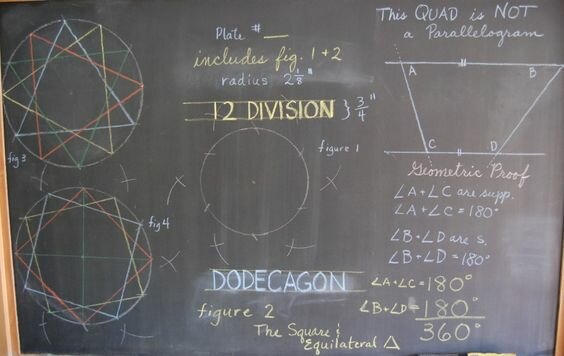 Plate # __
includes fig. 1 + 2
radius 2 1/8"
12 DIVISION } 3/4"
figure 1
fig 3
fig 4
DODECAGON
figure 2
The Square &
Equilateral △
This QUAD is NOT
a Parallelogram
A B
C D
Geometric Proof
∠A + ∠C are supp.
∠A + ∠C = 180°
∠B + ∠D are s.
∠B + ∠D = 180°
∠A + ∠C = 180°
∠B + ∠D = 180°
360°